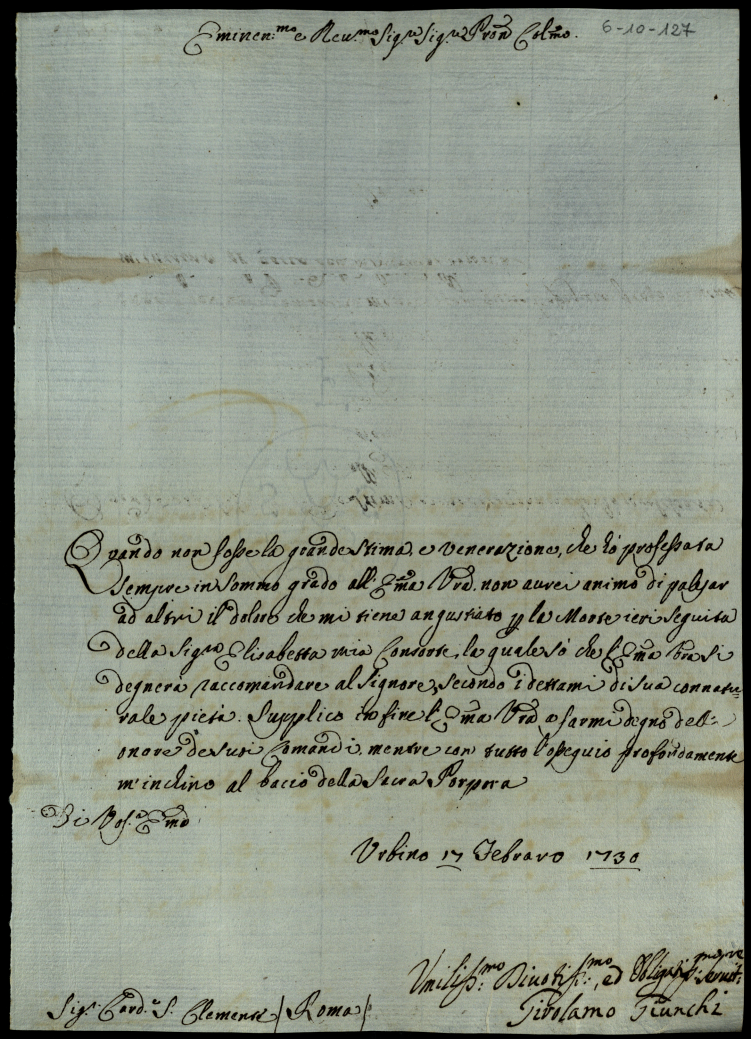 6-10-127
Eminen:mo e Reu:mo Sig:re Sig:re Pron Colmo.
Quando non fosse la grande stima, e venerazione, che hò professata
sempre in sommo grado all'Ema Vra, non aurei animo di palesar
ad altri il dolore che mi tiene angustiato p la Morte ieri seguita
della Sig:ra Elisabetta mia Consorte, la quale sò che l'Ema Vra si
degnerà raccomandare al Signore, secondo i dettami di sua connatu-
rale pietà. Supplico infine l'Ema Vra a farmi degno dell'
onore de suoi Comandi, mentre con tutto l'ossequio profondamente
m'inchino al bacio della Sacra Porpora
Di Vos:a Emã
Urbino 17 Febraro 1730
Umiliss:mo Divotiss:mo, ed Obligatiss:mo Seruit:re
Girolamo Giunchi
Sig:r Card:e S. Clemente / Roma /